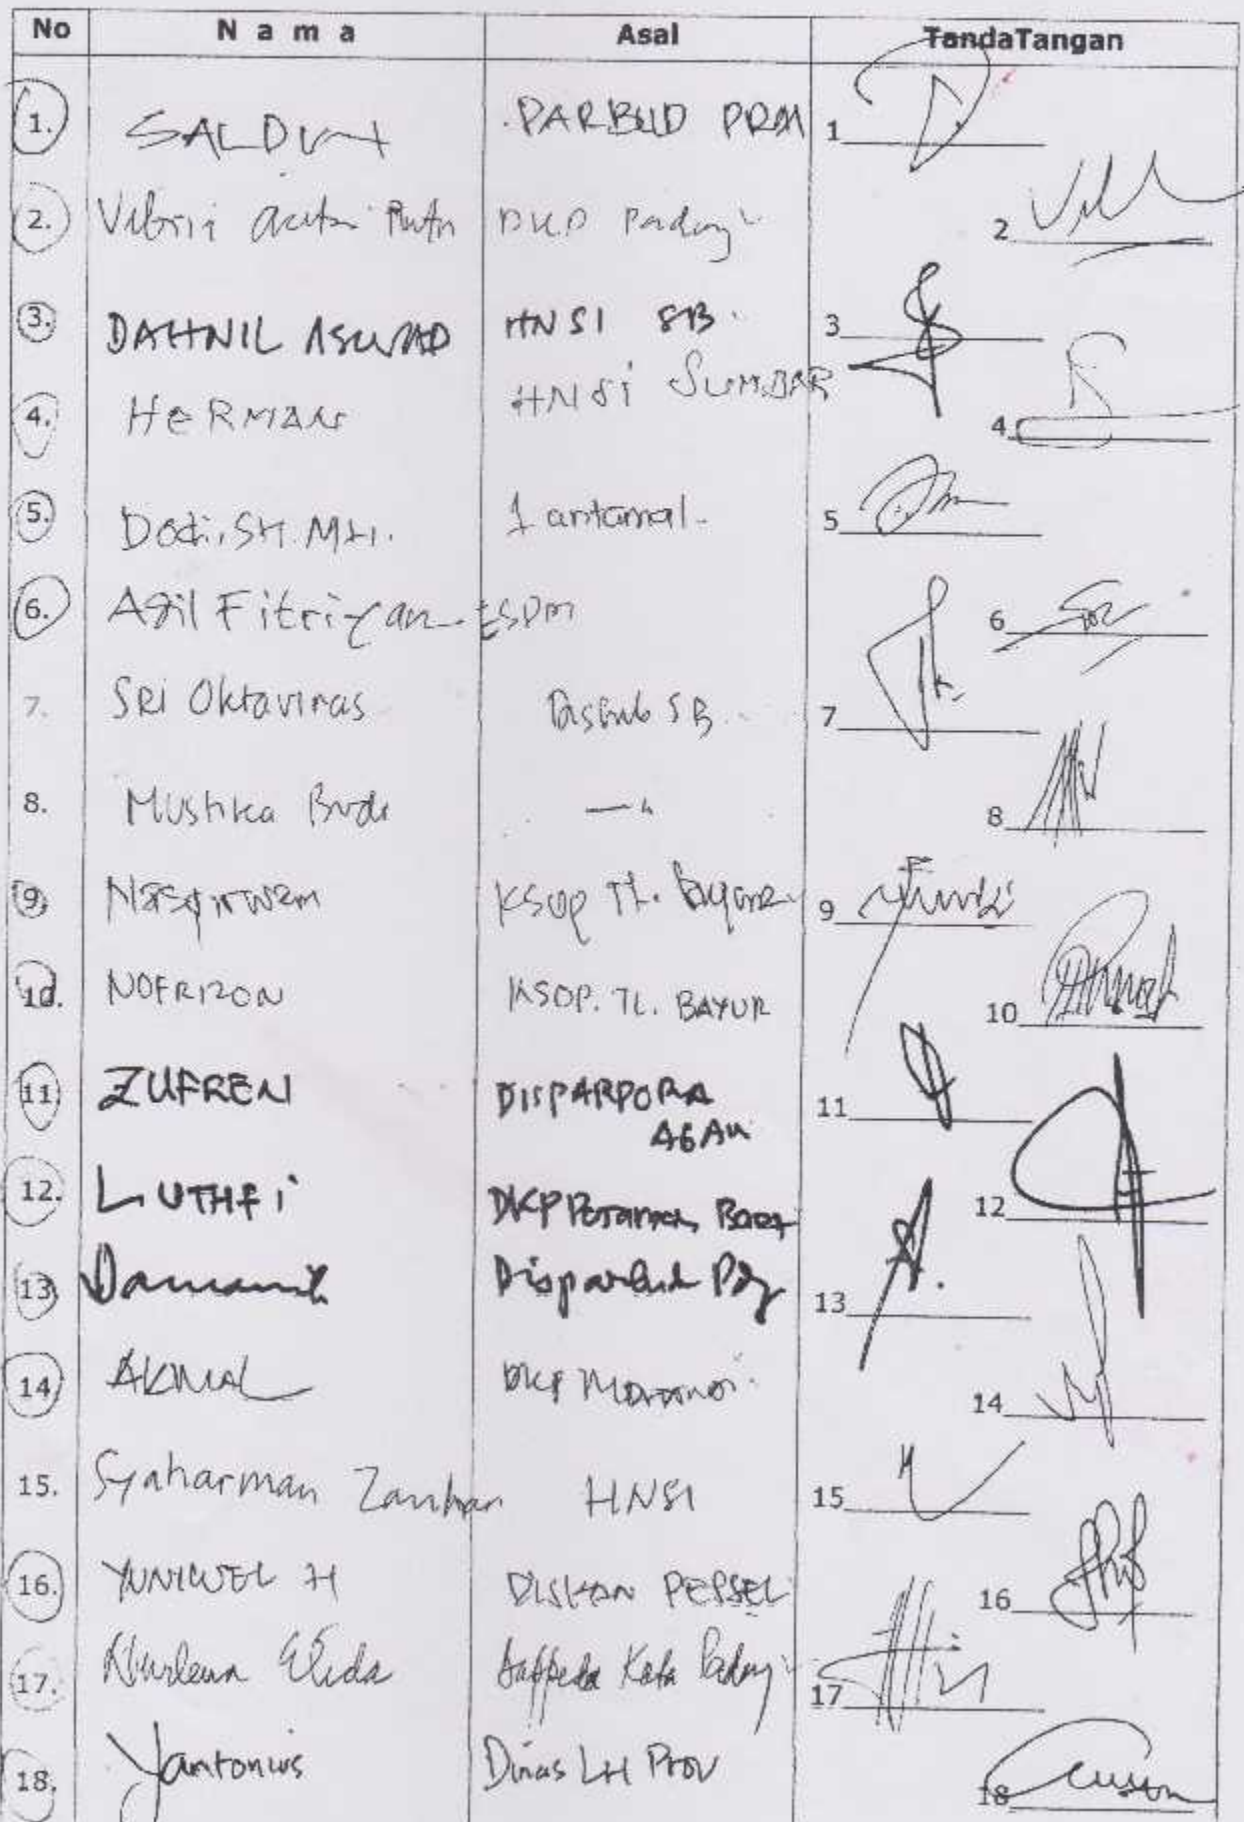 No Nama Asal TandaTangan
1. PARBUD 1
2. DKP Padang 2
3. DAHNIL ASWAD HNSI SB. 3
4. HeRMAN HNSi SUMBAR 4
5. Dodi, SH. MH. Lantamal. 5
6. Fitriyan ESDM 6
7. SRI Oktaviras SB 7
8. Mustika Budi —〃 8
9. KSOP TL. Bayur 9
10. NOFRIZON KSOP. TL. BAYUR 10
11. ZUFREN DISPARPORA 11
AGAM
12. LUTHFi DKP Pasaman Barat 12
13. Damanik Disparbud Pdg 13
14. AKMAL DKP 14
15. Syaharman HNSI 15
16. YUNIWEL H DISKAN PESSEL 16
17. Elida Bappeda Kota Padang 17
18. Yantonius Dinas LH Prov 18